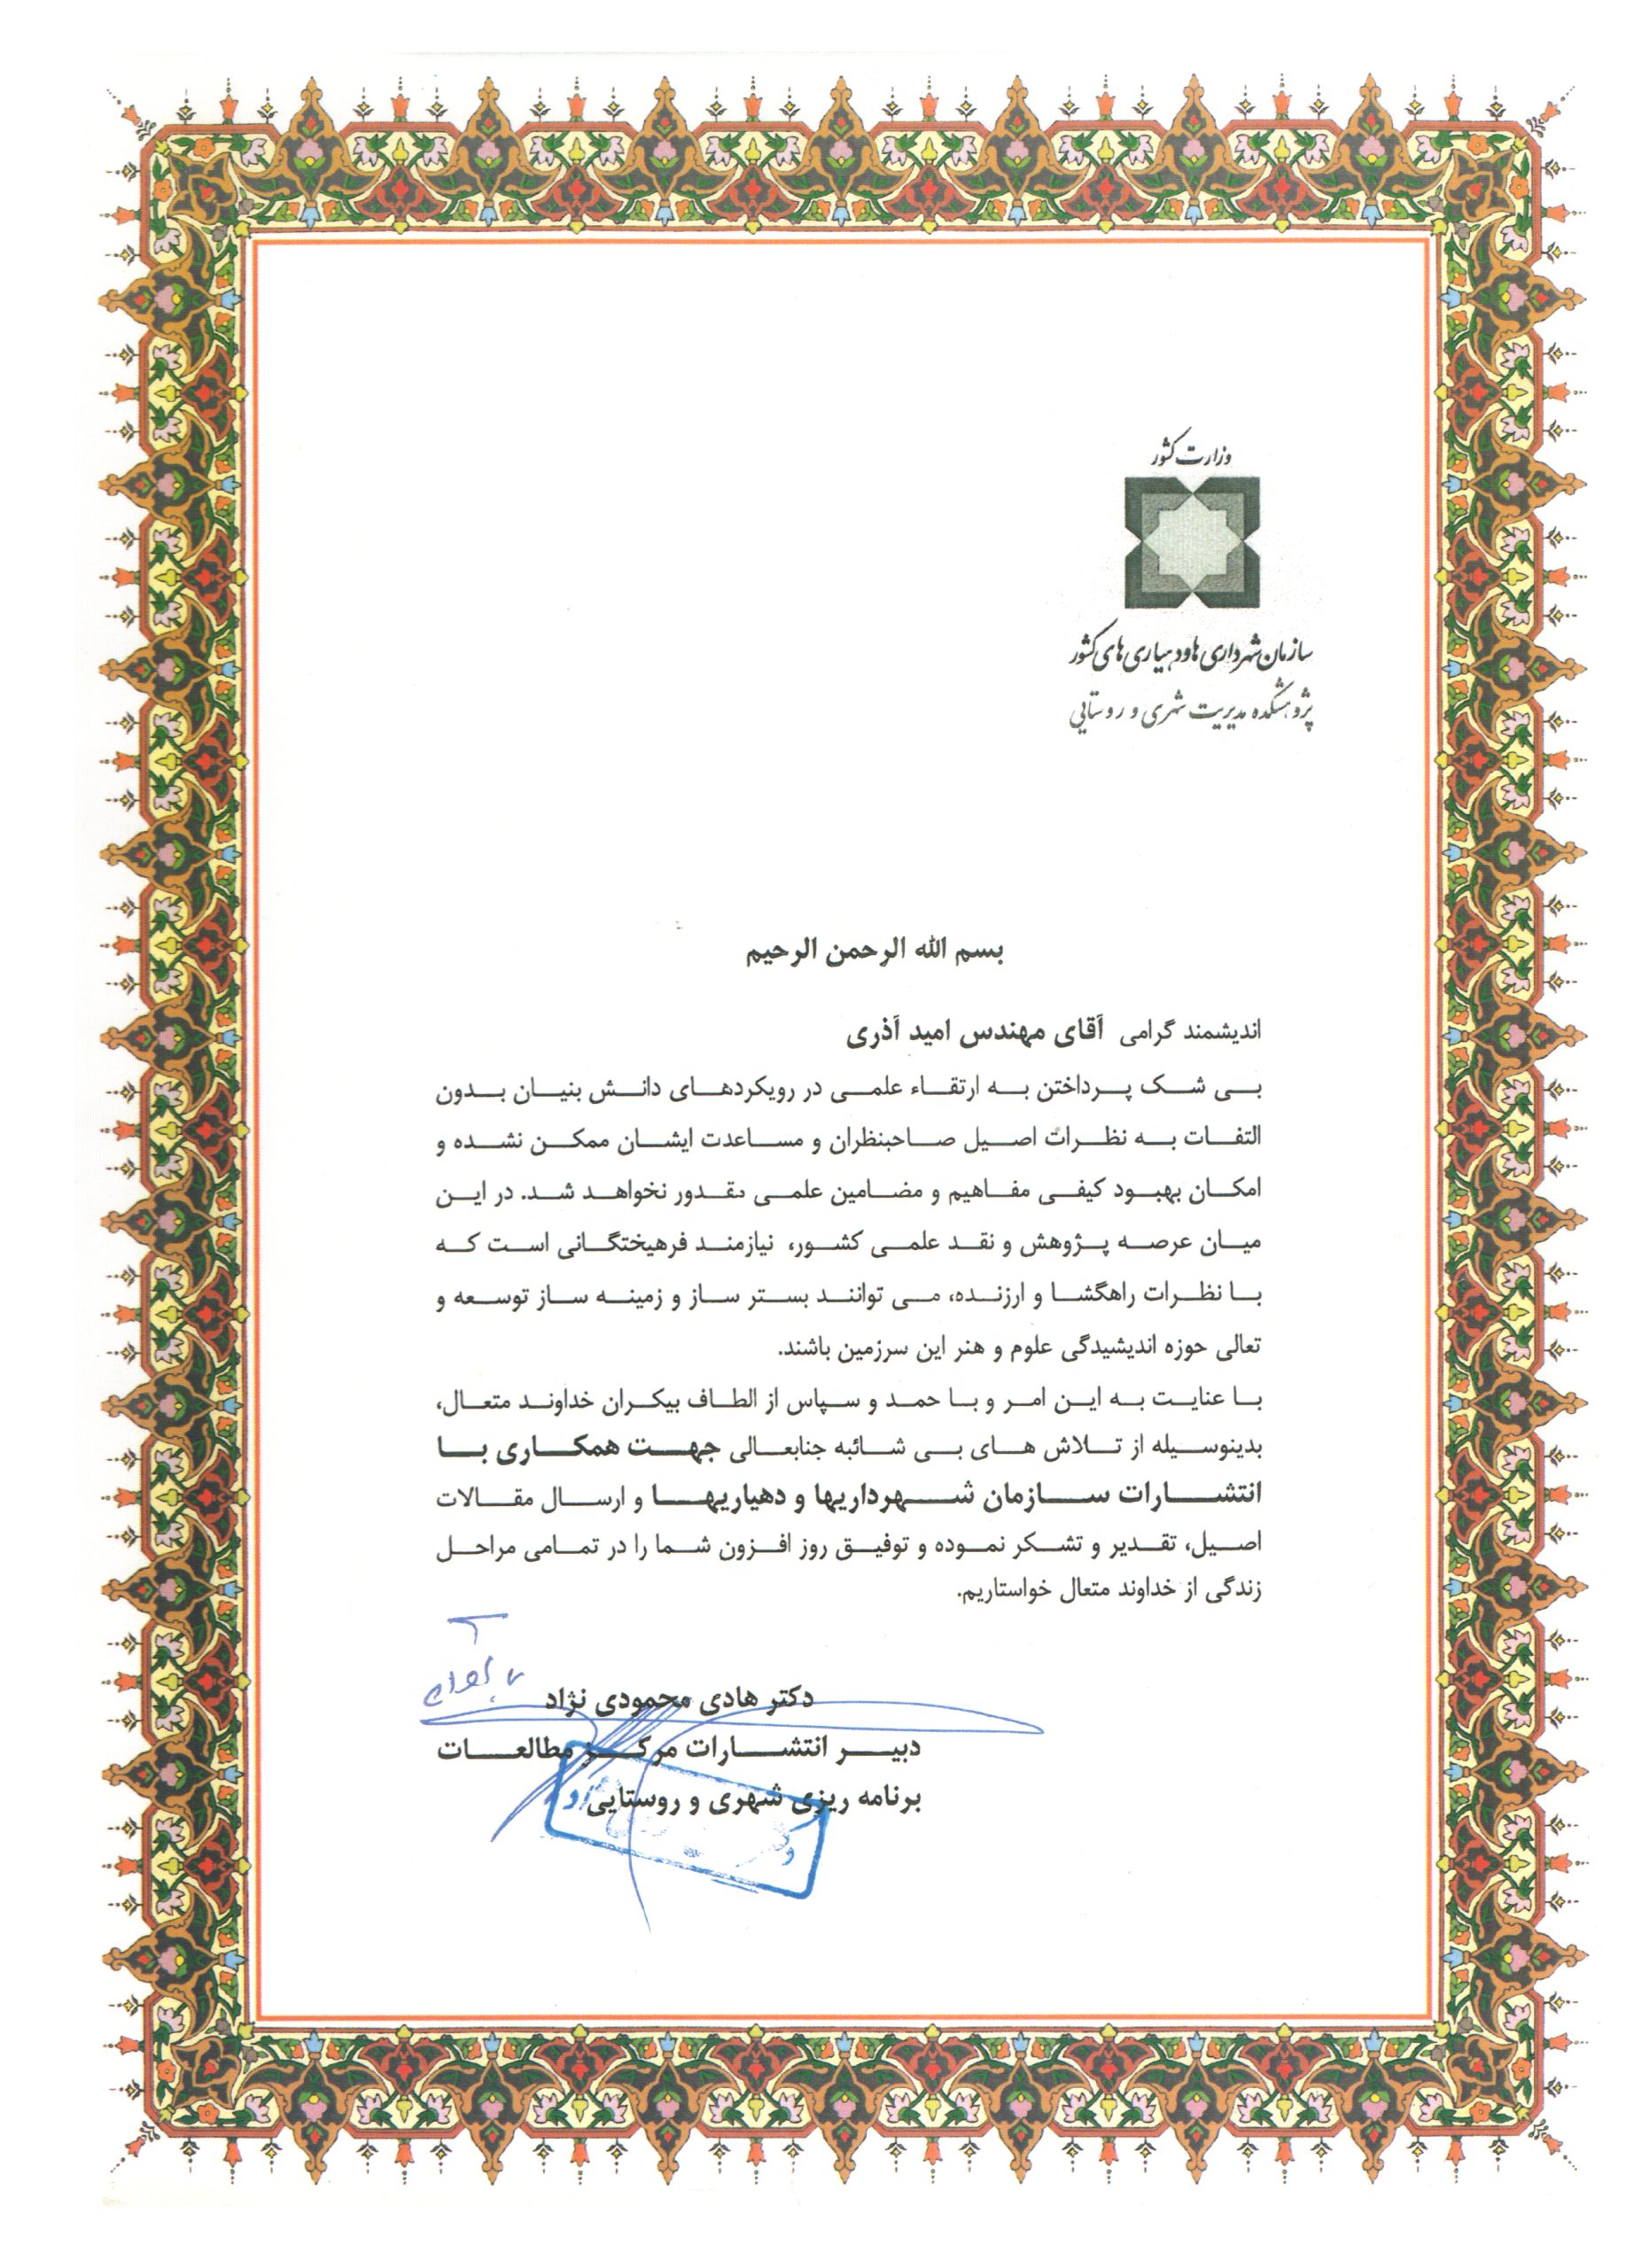 وزارت کشور
سازمان شهرداری ها و دهیاری های کشور
پژوهشکده مدیریت شهری و روستایی
بسم الله الرحمن الرحیم
اندیشمند گرامی آقای مهندس امید آذری
بی شک پرداختن به ارتقاء علمی در رویکردهای دانش بنیان بدون
التفات به نظرات اصیل صاحبنظران و مساعدت ایشان ممکن نشده و
امکان بهبود کیفی مفاهیم و مضامین علمی مقدور نخواهد شد. در این
میان عرصه پژوهش و نقد علمی کشور، نیازمند فرهیختگانی است که
با نظرات راهگشا و ارزنده، می توانند بستر ساز و زمینه ساز توسعه و
تعالی حوزه اندیشیدگی علوم و هنر این سرزمین باشند.
با عنایت به این امر و با حمد و سپاس از الطاف بیکران خداوند متعال،
بدینوسیله از تلاش های بی شائبه جنابعالی جهت همکاری با
انتشارات سازمان شهرداریها و دهیاریها و ارسال مقالات
اصیل، تقدیر و تشکر نموده و توفیق روز افزون شما را در تمامی مراحل
زندگی از خداوند متعال خواستاریم.
دکتر هادی محمودی نژاد
دبیر انتشارات مرکز مطالعات
برنامه ریزی شهری و روستایی